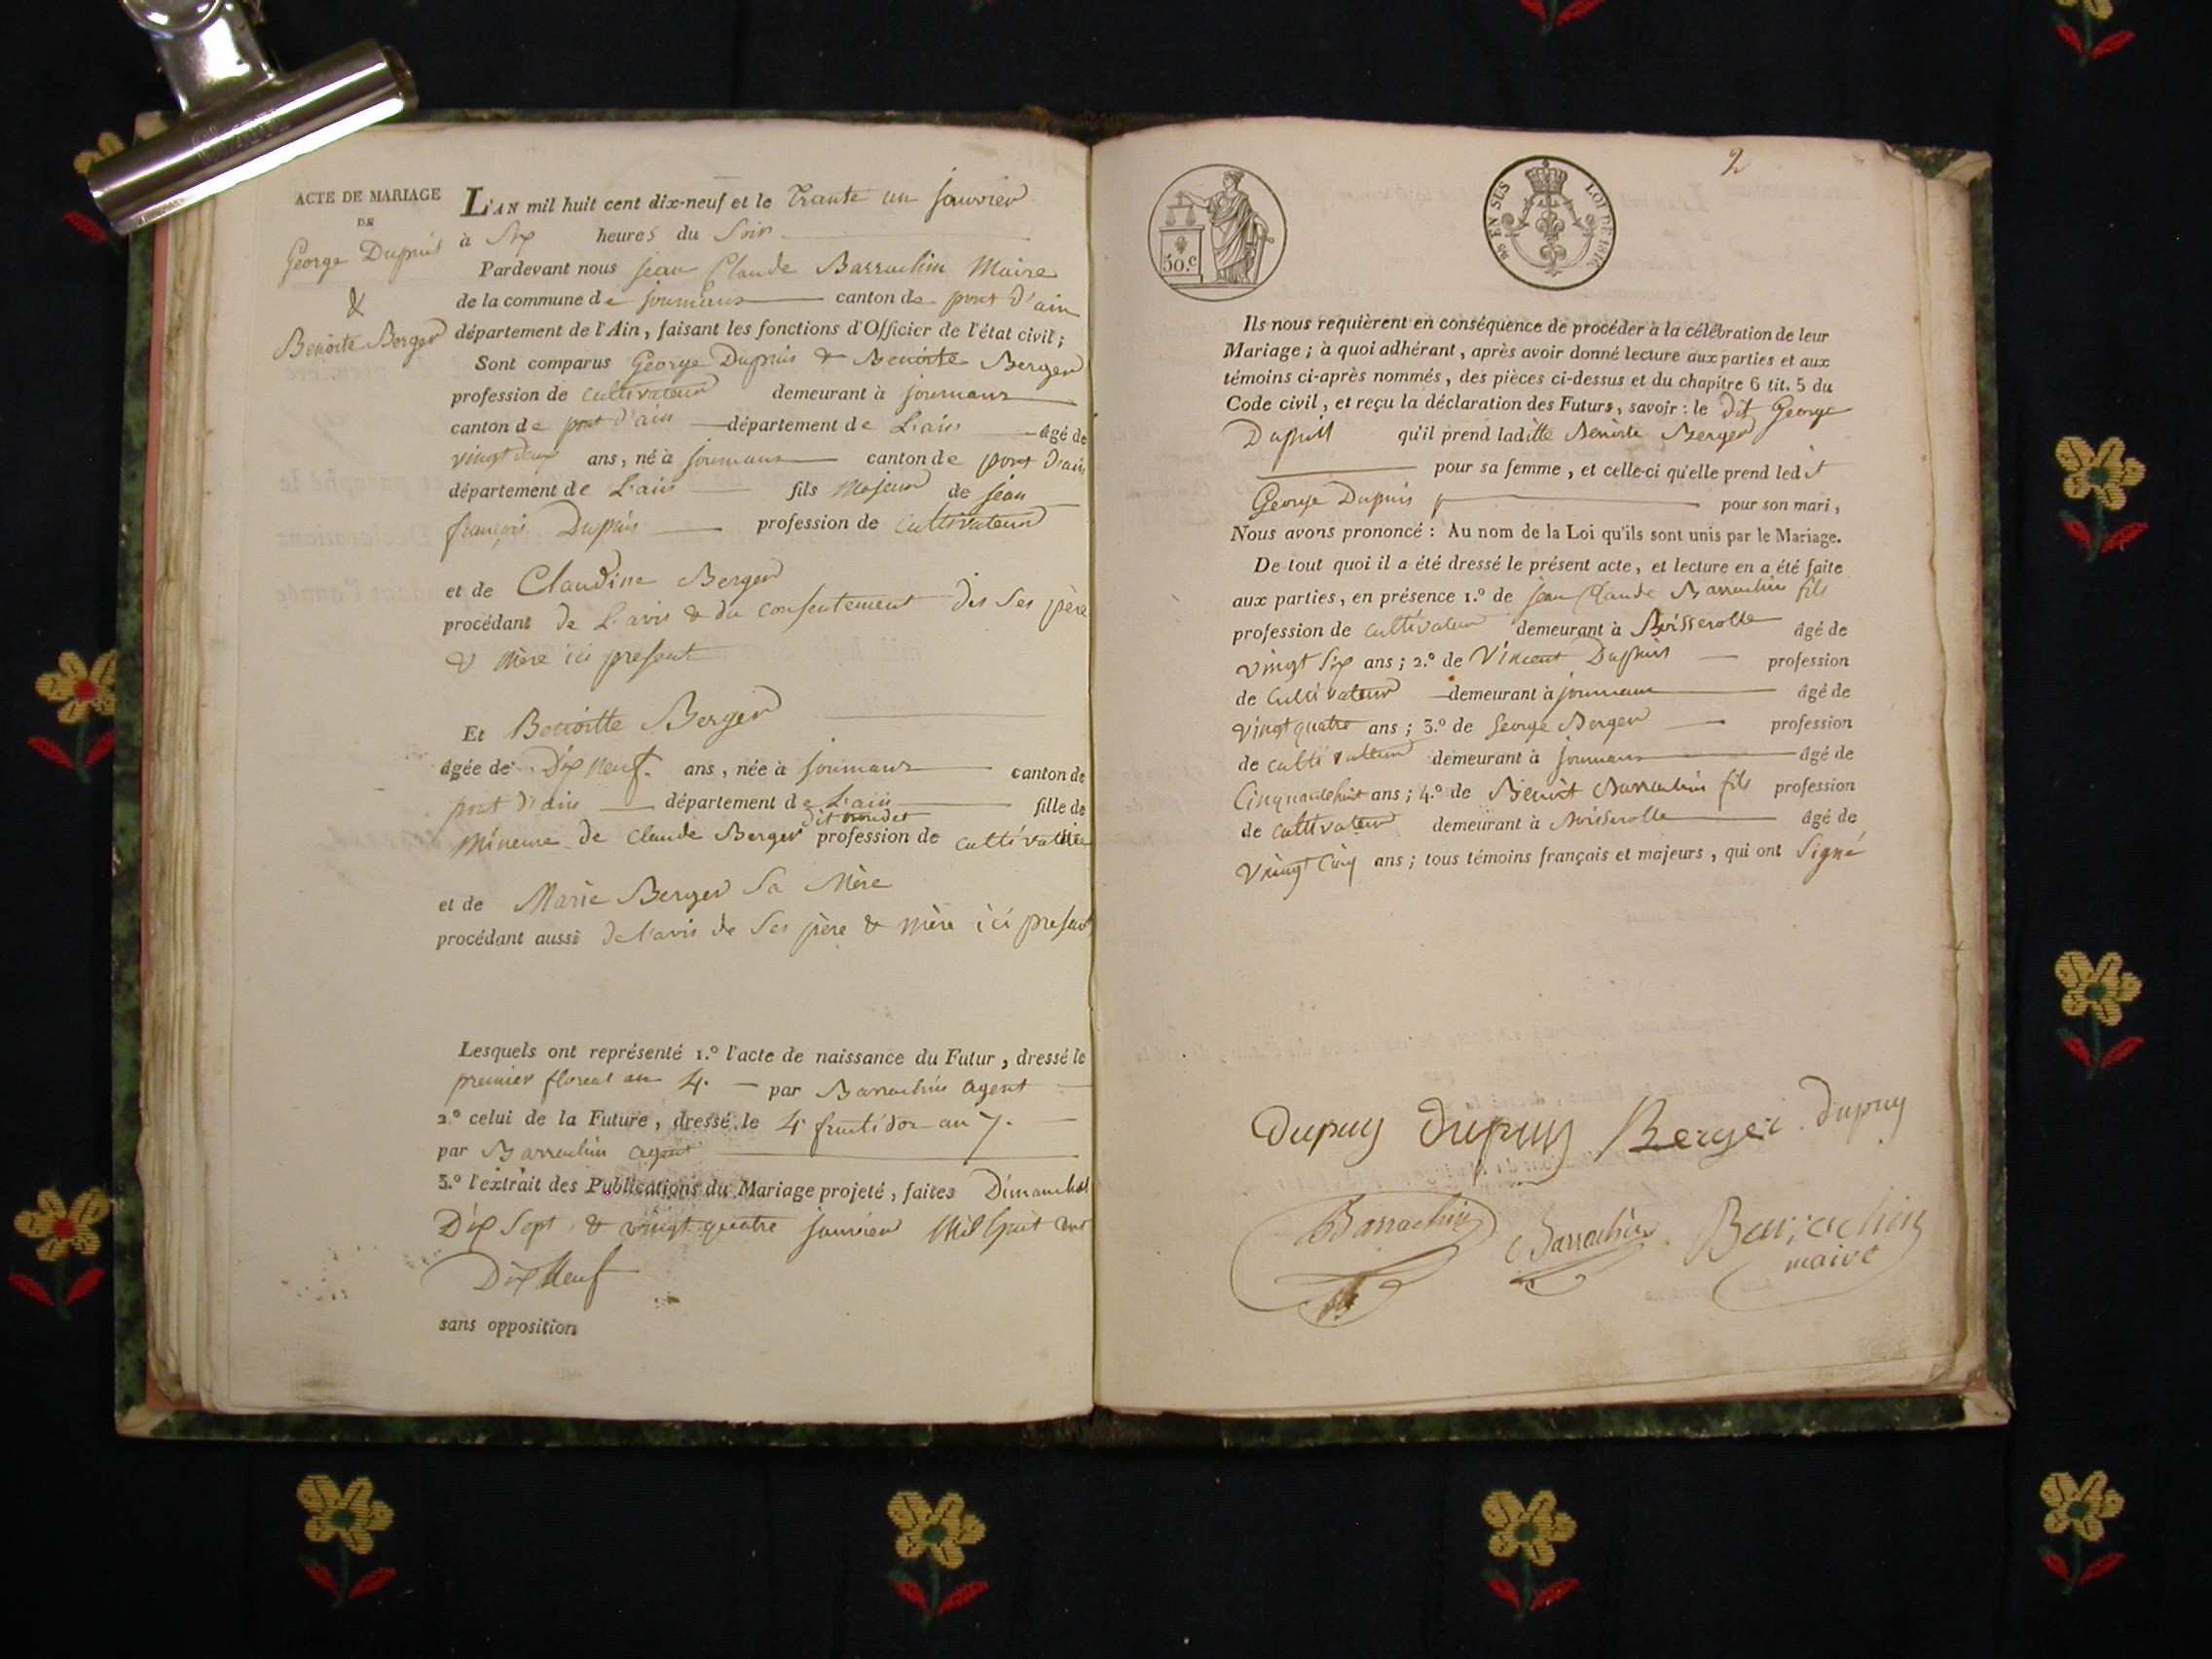 ACTE DE MARIAGE
DE
George Dupuis
&
Benoite Berger
L'AN mil huit cent dix-neuf et le Trante un janvier
à Six heures du Soir
Pardevant nous jean Claude Barrachin Maire
de la commune de joumans canton de pont d'ain
département de l'Ain, faisant les fonctions d'Officier de l'état civil;
Sont comparus George Dupuis & Benoite Berger
profession de cultivateur demeurant à joumans
canton de pont d'ain département de L'ain âgé de
vingt deux ans, né à joumans canton de pont d'ain
département de L'ain fils Majeur de jean
françois Dupuis profession de cultivateur
et de Claudine Berger
procédant de L'avis & du consentement des ses père
& mère ici present
Et Benoitte Berger
âgée de Dix neuf ans, née à joumans canton de
pont d'ain département de L'ain fille de
dit
Mineure de Claude Berger profession de cultivateur
et de Marie Berger Sa Mère
procédant aussi de l'avis de Ses père & mère ici present
Lesquels ont représenté 1.º l'acte de naissance du Futur, dressé le
premier floreal an 4. par Barrachin agent
2.º celui de la Future, dressé le 4 fructidor an 7.
par Barrachin agent
3.º l'extrait des Publications du Mariage projeté, faites Dimanches
Dix Sept & vingt quatre janvier Mil huit cent
Dix Neuf
sans opposition
2
50.C
EN SUS LOI DE 1816
Ils nous requièrent en conséquence de procéder à la célébration de leur
Mariage; à quoi adhérant, après avoir donné lecture aux parties et aux
témoins ci-après nommés, des pièces ci-dessus et du chapitre 6 tit. 5 du
Code civil, et reçu la déclaration des Futurs, savoir: le dit George
Dupuis qu'il prend laditte Benoite Berger
pour sa femme, et celle-ci qu'elle prend ledit
George Dupuis pour son mari,
Nous avons prononcé: Au nom de la Loi qu'ils sont unis par le Mariage.
De tout quoi il a été dressé le présent acte, et lecture en a été faite
aux parties, en présence 1.º de jean Claude Barrachin fils
profession de cultivateur demeurant à Boisserolle âgé de
vingt Six ans; 2.º de Vincent Dupuis profession
de cultivateur demeurant à joumans âgé de
vingt quatre ans; 3.º de George Berger profession
de cultivateur demeurant à joumans âgé de
Cinquante huit ans; 4.º de Benoit Barrachin fils profession
de cultivateur demeurant à Boisserolle âgé de
Vingt Cinq ans; tous témoins français et majeurs, qui ont Signé
Dupuy Dupuy Berger Dupuy
Barrachin Barrachin Barrachin
maire